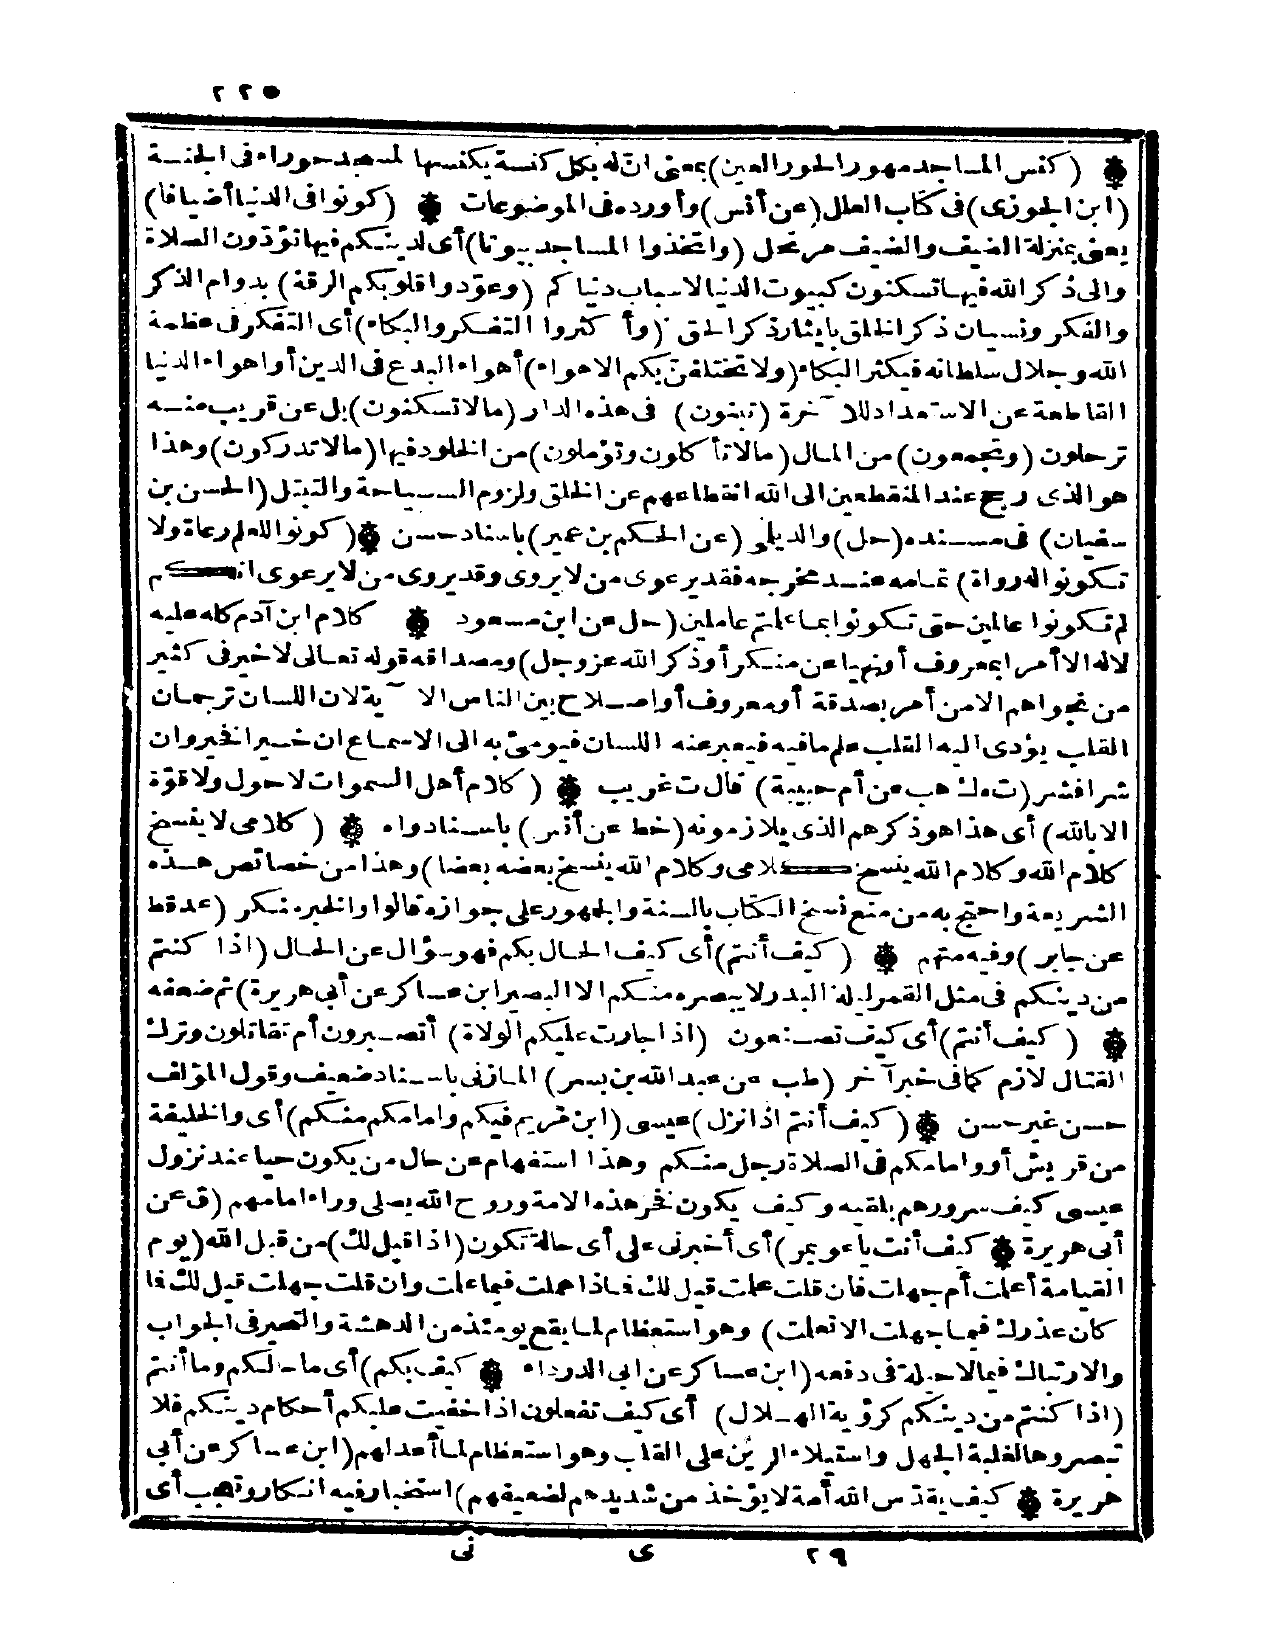 ٢٢٥
۞ (كنس المساجد مهور الحور العين) بمعنى ان له بكل كنسة يكنسها لمسجد حوراء فى الجنة
(ابن الجوزى) فى كتاب العلل (عن أنس) وأورده فى الموضوعات ۞ (كونوا فى الدنيا أضيافا)
يعنى بمنزلة الضيف والضيف مرتحل (واتخذوا المساجد بيوتا) أى لدينكم فيها تؤدون الصلاة
والى ذكر الله فيها تسكنون كبيوت الدنيا لاسباب دنياكم (وعوّدوا قلوبكم الرقة) بدوام الذكر
والفكر ونسيان ذكر الخلق بايثار ذكر الحق (وأكثروا التفكر والبكاء) أى التفكر فى عظمة
الله وجلال سلطانه فيكثر البكاء (ولا تختلفنّ بكم الاهواء) أهواء البدع فى الدين أو اهواء الدنيا
القاطعة عن الاستعداد للآخرة (تبنون) فى هذه الدار (ما لا تسكنون) بل عن قريب منه
ترحلون (وتجمعون) من المال (ما لا تأكلون وتؤملون) من الخلود فيها (ما لا تدركون) وهذا
هو الذى رجع عند المنقطعين الى الله انقطاعهم عن الخلق ولزوم السياحة والتبتل (الحسن بن
سفيان) فى مسنده (حل) والديلى (عن الحكم بن عمير) باسناد حسن ۞ (كونوا للعلم رعاة ولا
تكونوا له رواة) تمامه عند مخرجه فقد يرعوى من لا يروى وقد يروى من لا يرعوى انكم
لم تكونوا عالمين حتى تكونوا بما علمتم عاملين (حل عن ابن مسعود ۞ كلام ابن آدم كله عليه
لا له الا أمرا بمعروف أو نهيا عن منكر أو ذكر الله عز وجل) ومصداقه قوله تعالى لا خير فى كثير
من نجواهم الا من أمر بصدقة أو معروف أو اصلاح بين الناس الآية لان اللسان ترجمان
القلب يؤدى اليه القلب علم ما فيه فيعبر عنه اللسان فيومئ به الى الاسماع ان خيرا فخير وان
شرا فشر (ت ه ك هب عن أم حبيبة) قال ت غريب ۞ (كلام أهل السموات لا حول ولا قوّة
الا بالله) أى هذا هو ذكرهم الذى يلازمونه (خط عن أنس) باسناد واه ۞ (كلامى لا ينسخ
كلام الله وكلام الله ينسخ كلامى وكلام الله ينسخ بعضه بعضا) وهذا من خصائص هذه
الشريعة واحتج به من منع نسخ الكتاب بالسنة والجمهور على جوازه قالوا والخبر منكر (عد قط
عن جابر) وفيه متهم ۞ (كيف أنتم) أى كيف الحال بكم فهو سؤال عن الحال (اذا كنتم
من دينكم فى مثل القمر ليلة البدر لا يبصره منكم الا البصير ابن عساكر عن أبى هريرة) ثم ضعفه
۞ (كيف أنتم) أى كيف تصنعون (اذا جارت عليكم الولاة) أتصبرون أم تقاتلون وترك
القتال لازم كما فى خبر آخر (طب عن عبد الله بن بسر) المازنى باسناد ضعيف وقول المؤلف
حسن غير حسن ۞ (كيف أنتم اذا نزل) عيسى (ابن مريم فيكم وامامكم منكم) أى والخليفة
من قريش أو وامامكم فى الصلاة رجل منكم وهذا استفهام عن حال من يكون حيا عند نزول
عيسى كيف سرورهم بلقيه وكيف يكون فخر هذه الامة وروح الله يصلى وراء امامهم (ق عن
أبى هريرة ۞ كيف أنت يا عويمر) أى أخبرنى على أى حالة تكون (اذا قيل لك) من قبل الله (يوم
القيامة أعلمت أم جهلت فان قلت علمت قيل لك فماذا عملت فيما علمت وان قلت جهلت قيل لك فما
كان عذرك فيما جهلت الا تعلمت) وهو استعظام لما يقع يومئذ من الدهشة والتحير فى الجواب
والارتباك فيما لا حيلة فى دفعه (ابن عساكر عن ابى الدرداء ۞ كيف بكم) أى ما حالكم وما أنتم
(اذا كنتم من دينكم كرؤية الهلال) أى كيف تفعلون اذا خفيت عليكم أحكام دينكم فلا
تبصروها لغلبة الجهل واستيلاء الرين على القلب وهو استعظام لما أعد لهم (ابن عساكر عن أبى
هريرة ۞ كيف يقدّس الله أمة لا يؤخذ من شديدهم لضعيفهم) استخبار فيه انكار وتعجب أى
٢٩ ى نى